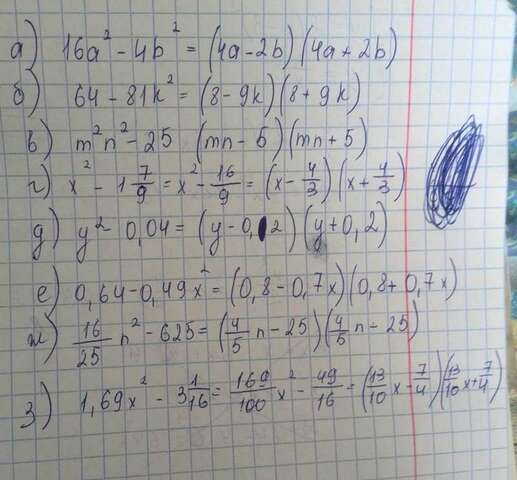 а) 16a² - 4b² = (4a - 2b)(4a + 2b)
б) 64 - 81k² = (8 - 9k)(8 + 9k)
в) m²n² - 25 (mn - 5)(mn + 5)
г) x² - 1 7/9 = x² - 16/9 = (x - 4/3)(x + 4/3)
д) y² 0,04 = (y - 0,2)(y + 0,2)
е) 0,64 - 0,49x² = (0,8 - 0,7x)(0,8 + 0,7x)
ж) 16/25 n² - 625 = (4/5 n - 25)(4/5 n - 25)
з) 1,69x² - 3 1/16 = 169/100 x² - 49/16 = (13/10 x - 7/4)(13/10 x + 7/4)